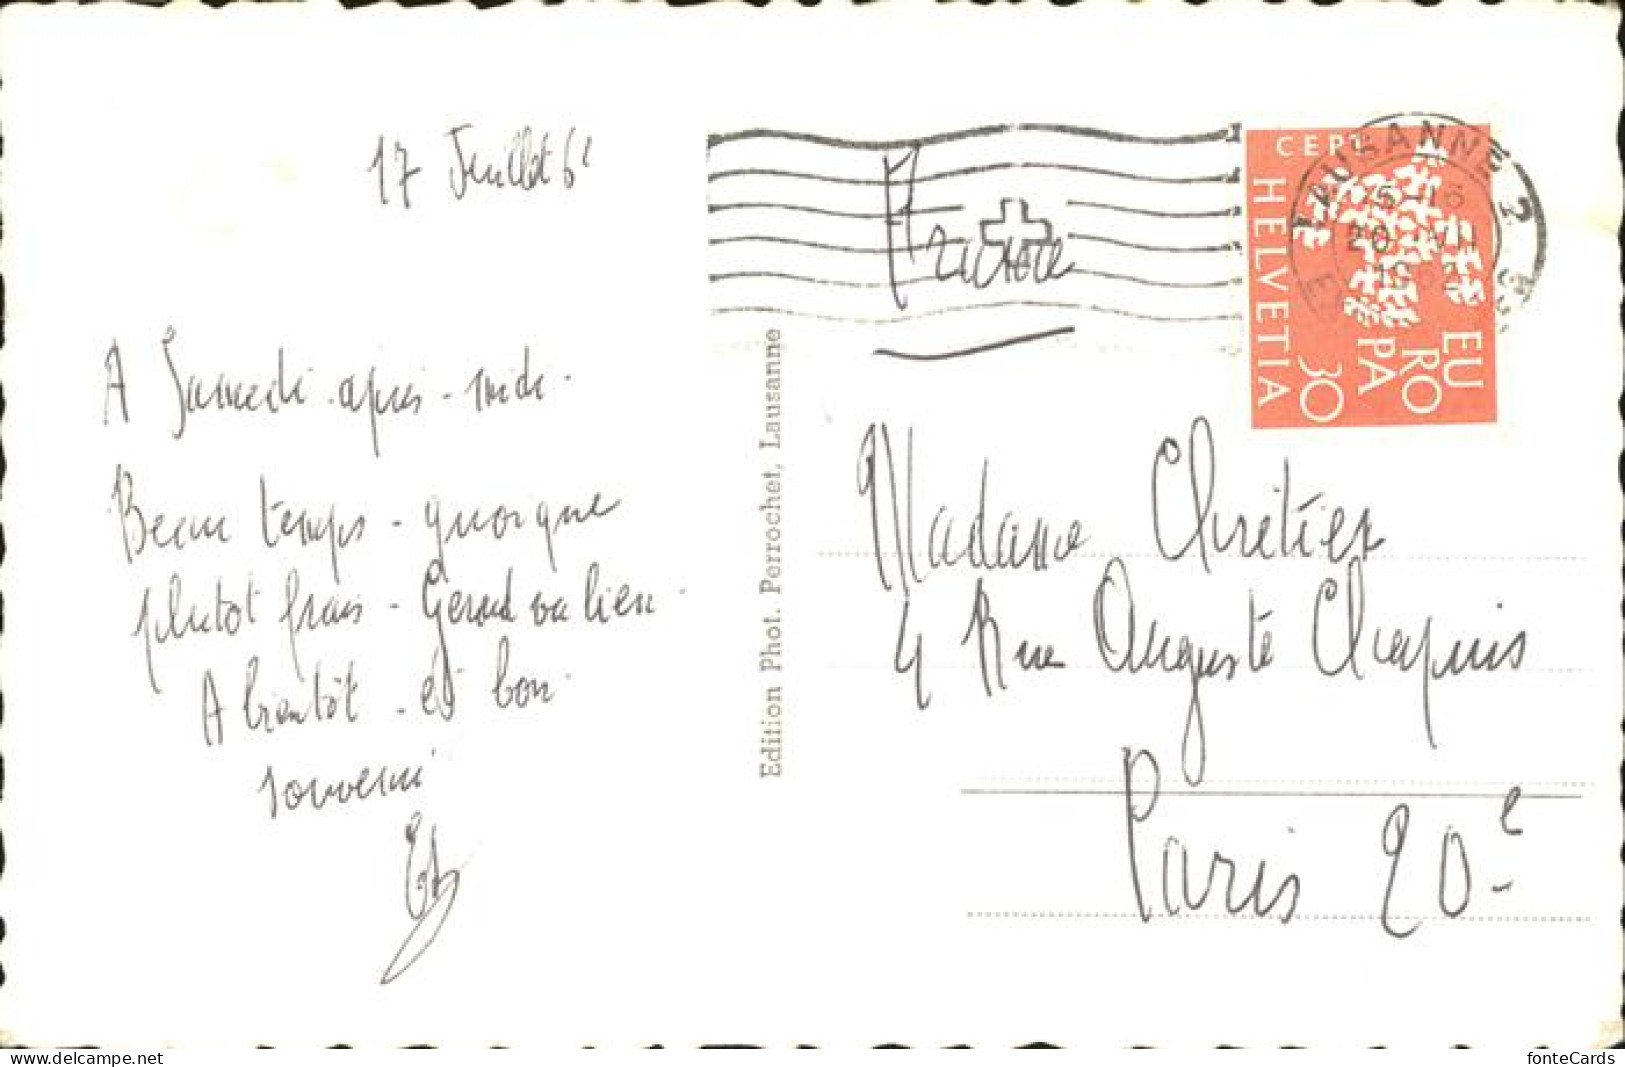 17 Juillet 6
A Samedi après-midi.
Beau temps - quoique
plutot frais - Gérard va bien.
A bientôt - et bon
souvenir
Edition Phot. Perrochet, Lausanne
France
CEPT
HELVETIA
30
EUROPA
LAUSANNE 2
20 VII
Madame Chrétien
4 Rue Auguste Chapuis
Paris 20e
fonteCards